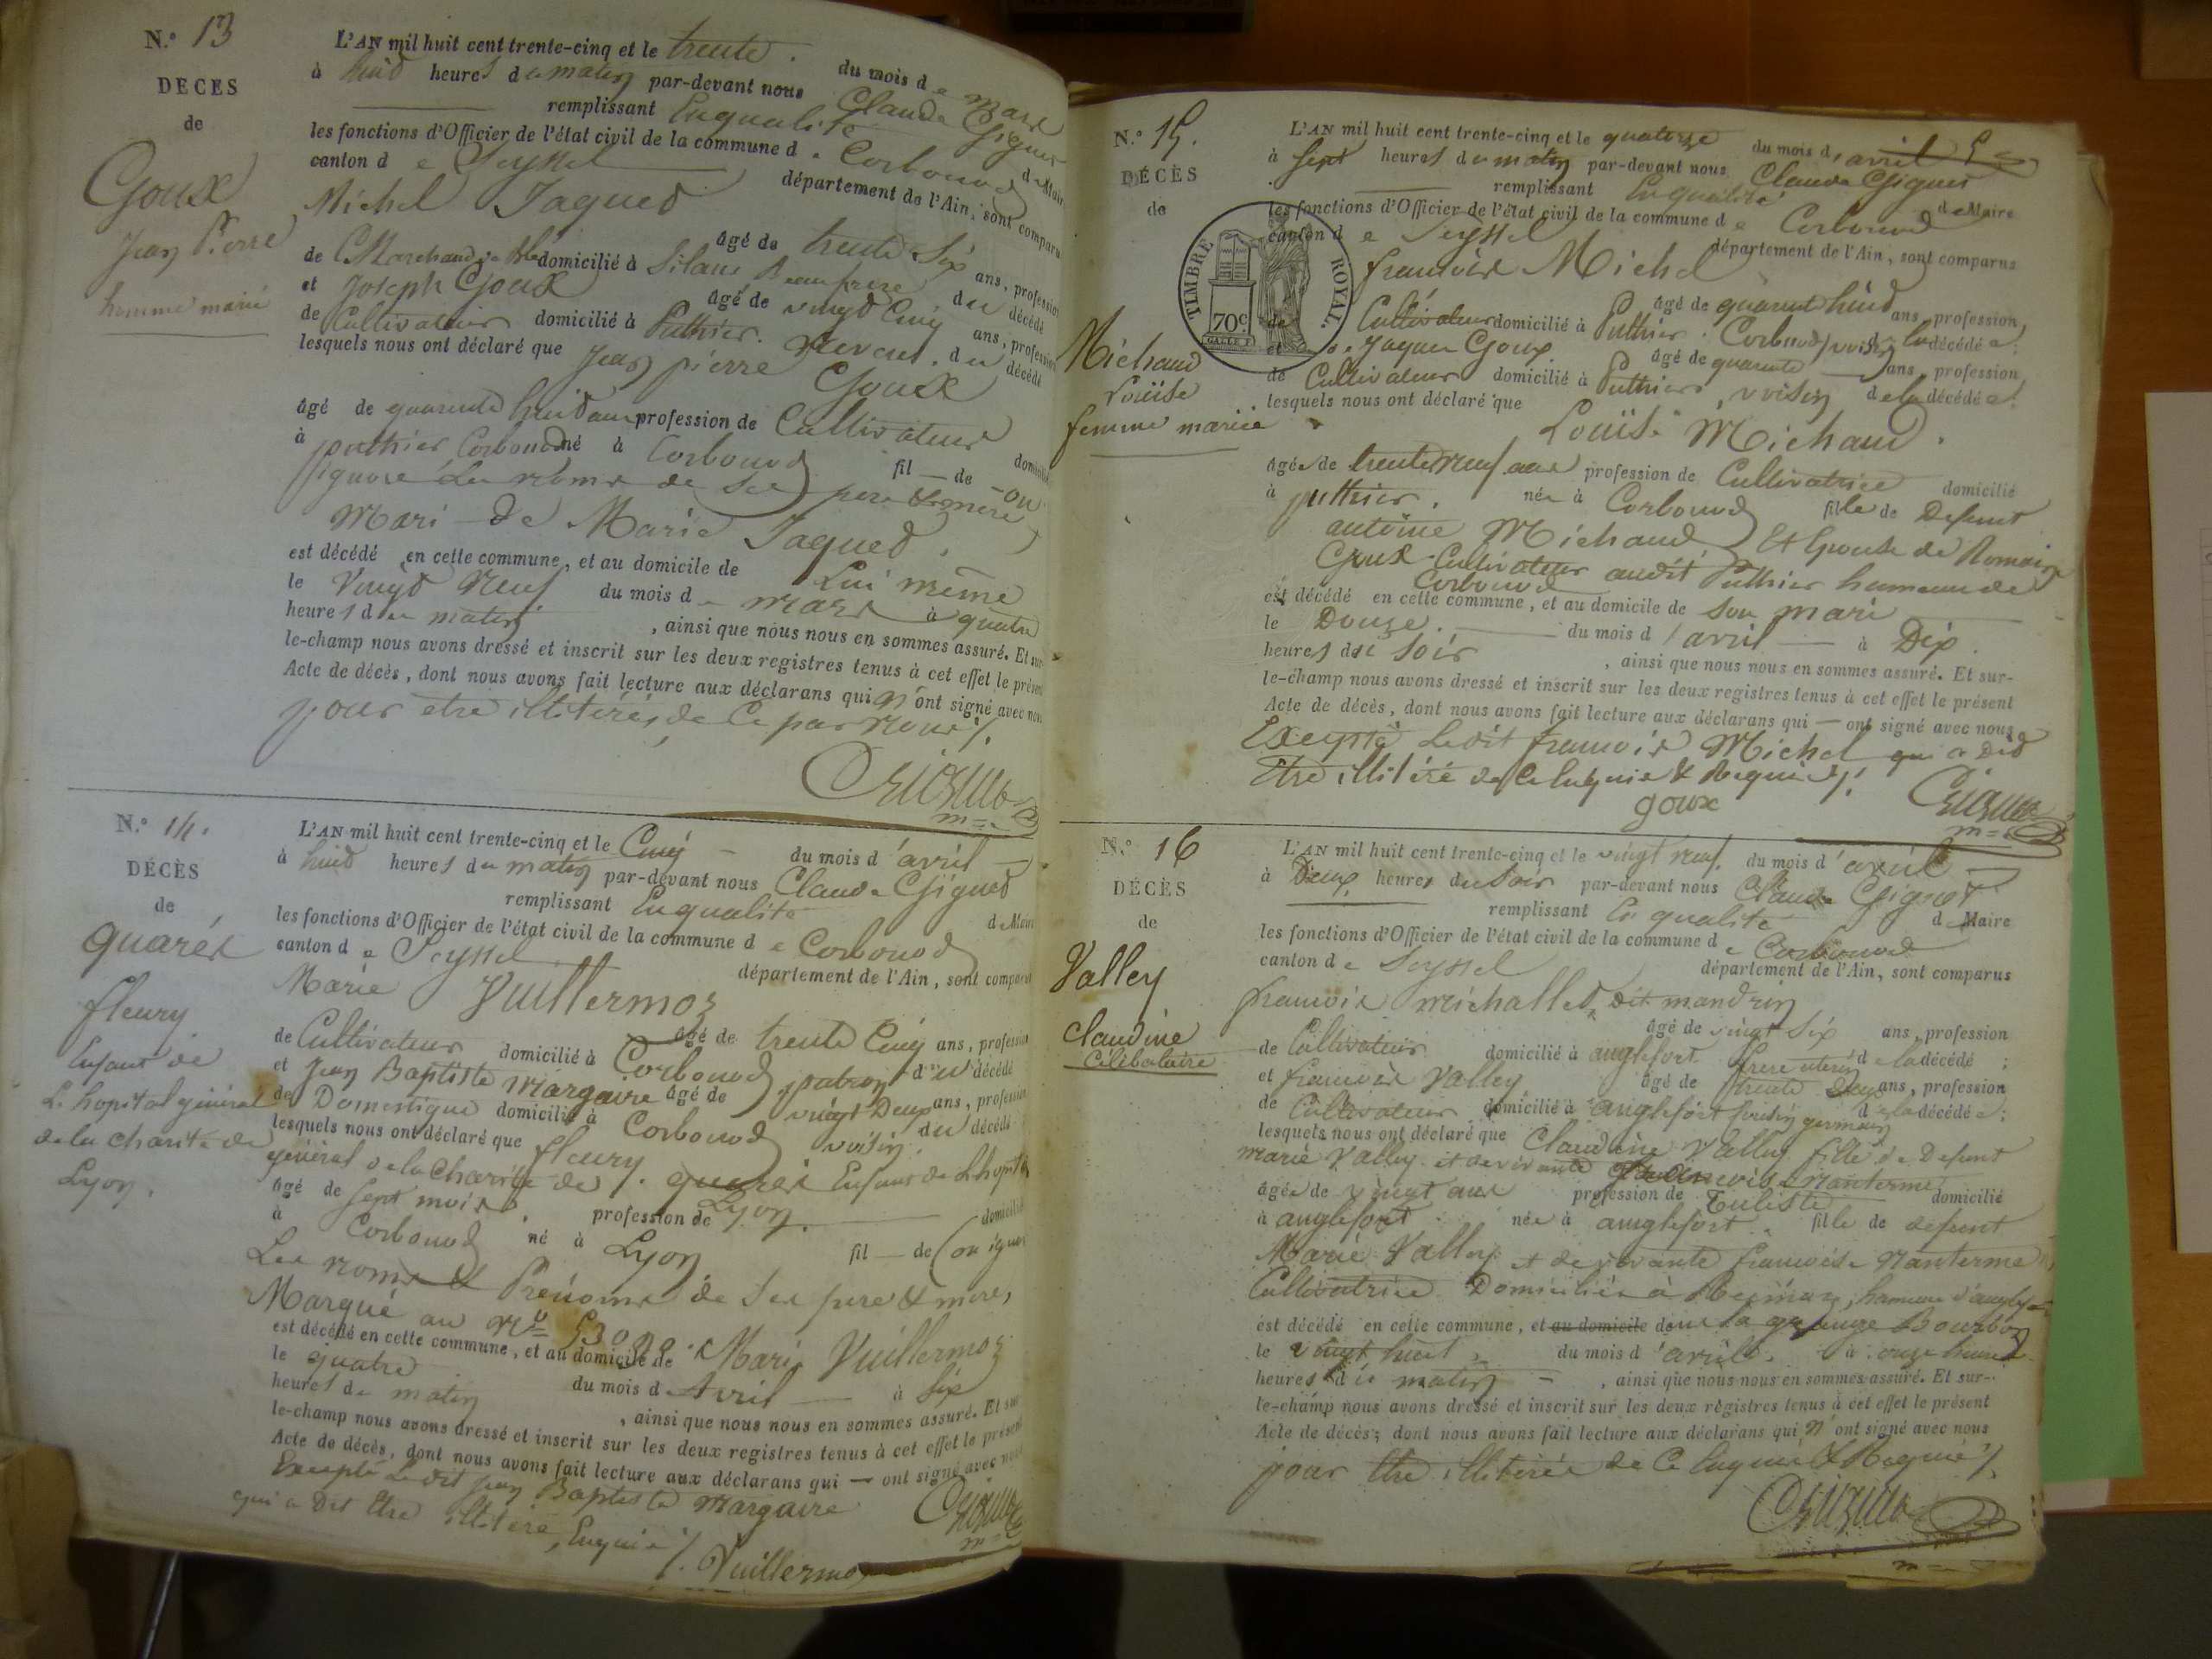 N.º 13
DECES
de
Goux
Jean Pierre
homme marié
L'AN mil huit cent trente-cinq et le trente du mois de mars
à huit heures du matin par-devant nous Claude
remplissant En qualité de Maire
les fonctions d'Officier de l'état civil de la commune de Corbonod
canton de Seyssel département de l'Ain, sont comparu
Michel Jaquet
âgé de trente Six ans, profession
de Marchand domicilié à Beaufrere du décédé
et Joseph Goux âgé de vingt Cinq ans, profession
de Cultivateur domicilié à Puthier. neveu du décédé
lesquels nous ont déclaré que Jean pierre Goux
âgé de quarente huit ans profession de Cultivateur domicilié
à puthier Corbonod né à Corbonod fil — de — on
ignore Les noms de Ses pere & mere
Mari de Marie Jaquet
est décédé en cette commune, et au domicile de Lui même
le Vingt neuf du mois de mars à quatre
heures du matin, ainsi que nous nous en sommes assuré. Et sur-
le-champ nous avons dressé et inscrit sur les deux registres tenus à cet effet le présent
Acte de décès, dont nous avons fait lecture aux déclarans qui n'ont signé avec nous
pour etre illitérés de Ce par nous /.
N.º 14.
DÉCÈS
de
quarés
fleury
Enfant de
L'hopital général
de la charité de
Lyon.
L'AN mil huit cent trente-cinq et le Cinq du mois d'avril
à huit heures du matin par-devant nous Claude
remplissant En qualité de Maire
les fonctions d'Officier de l'état civil de la commune de Corbonod
canton de Seyssel département de l'Ain, sont comparus
Marie Vuillermoz
âgé de trente Cinq ans, profession
de Cultivateur domicilié à Corbonod patron du décédé
et Jean Baptiste Margaire âgé de vingt Deux ans, profession
de Domestique domicilié à Corbonod voisin du décédé
lesquels nous ont déclaré que fleury quarés Enfant de L'hopital
général de la Charité de Lyon.
âgé de Sept mois profession de — domicilié
à Corbonod né à Lyon fil — de (on ignore
Les noms & Prénoms de Ses pere & mere,
Marqué au Nº
est décédé en cette commune, et au domicile de Marie Vuillermoz
le quatre du mois d Avril — à Six
heures du matin, ainsi que nous nous en sommes assuré. Et sur-
le-champ nous avons dressé et inscrit sur les deux registres tenus à cet effet le présent
Acte de décès, dont nous avons fait lecture aux déclarans qui — ont signé avec nous
Excepté Ledit Jean Baptiste Margaire
qui a Dit Etre illitéré, Enquié /. Vuillermoz
N.º 15.
DÉCÈS
de
TIMBRE ROYAL.
70c
Michaud
Louïse
femme mariée
L'AN mil huit cent trente-cinq et le quatorze du mois d'avril
à Sept heures du matin par-devant nous Claude
remplissant En qualité de Maire
les fonctions d'Officier de l'état civil de la commune de Corbonod
canton de Seyssel département de l'Ain, sont comparus
francois Michel
âgé de quarent huit ans, profession
de Cultivateur domicilié à Puthier Corbonod voisin de la décédée
et Jaques Goux âgé de quarente ans, profession
de Cultivateur domicilié à Puthier, voisin de la décédée
lesquels nous ont déclaré que Louïse Michaud.
âgée de trente neuf ans profession de Cultivatrice domicilié
à puthier. née à Corbonod fille de Defunt
antoine Michaud Et Epouse de Romain
Goux Cultivateur audit Puthier hameau de
Corbonod
est décédé en cette commune, et au domicile de Son mari
le Douze. du mois d'avril — à Dix
heures du Soir, ainsi que nous nous en sommes assuré. Et sur-
le-champ nous avons dressé et inscrit sur les deux registres tenus à cet effet le présent
Acte de décès, dont nous avons fait lecture aux déclarans qui — ont signé avec nous
Excepté Ledit francois Michel qui a Dit
Etre illitéré de Ce Enquié & Requié /.
goux
N.º 16
DÉCÈS
de
Valley
Claudine
Célibataire
L'AN mil huit cent trente-cinq et le vingt neuf du mois d'avril
à Deux heures du Soir par-devant nous Claude
remplissant En qualité de Maire
les fonctions d'Officier de l'état civil de la commune de Corbonod
canton de Seyssel département de l'Ain, sont comparus
francois michallet, dit mandrin
âgé de vingt Six ans, profession
de Cultivateur domicilié à anglefort. frere uterin de la décédé;
et francois Valley âgé de trente Deux ans, profession
de Cultivateur domicilié à anglefort Cousin germain de la décédée;
lesquels nous ont déclaré que Claudine Valley fille de Defunt
marie Valley et de vivante francoise nanterme
âgée de vingt ans profession de Tuliste domicilié
à anglefort. née à anglefort fille de defunt
Marie Valley et de vivante francoise nanterme
Cultivatrice Domiciliée à hameau d'anglefort
est décédé en cette commune, et au domicile dans la grange Bourbon
le vingt huit du mois d'avril. à onze heures
heures du matin, ainsi que nous nous en sommes assuré. Et sur-
le-champ nous avons dressé et inscrit sur les deux registres tenus à cet effet le présent
Acte de décès, dont nous avons fait lecture aux déclarans qui n'ont signé avec nous
pour Etre illitérés de Ce Enquié & Requié /.